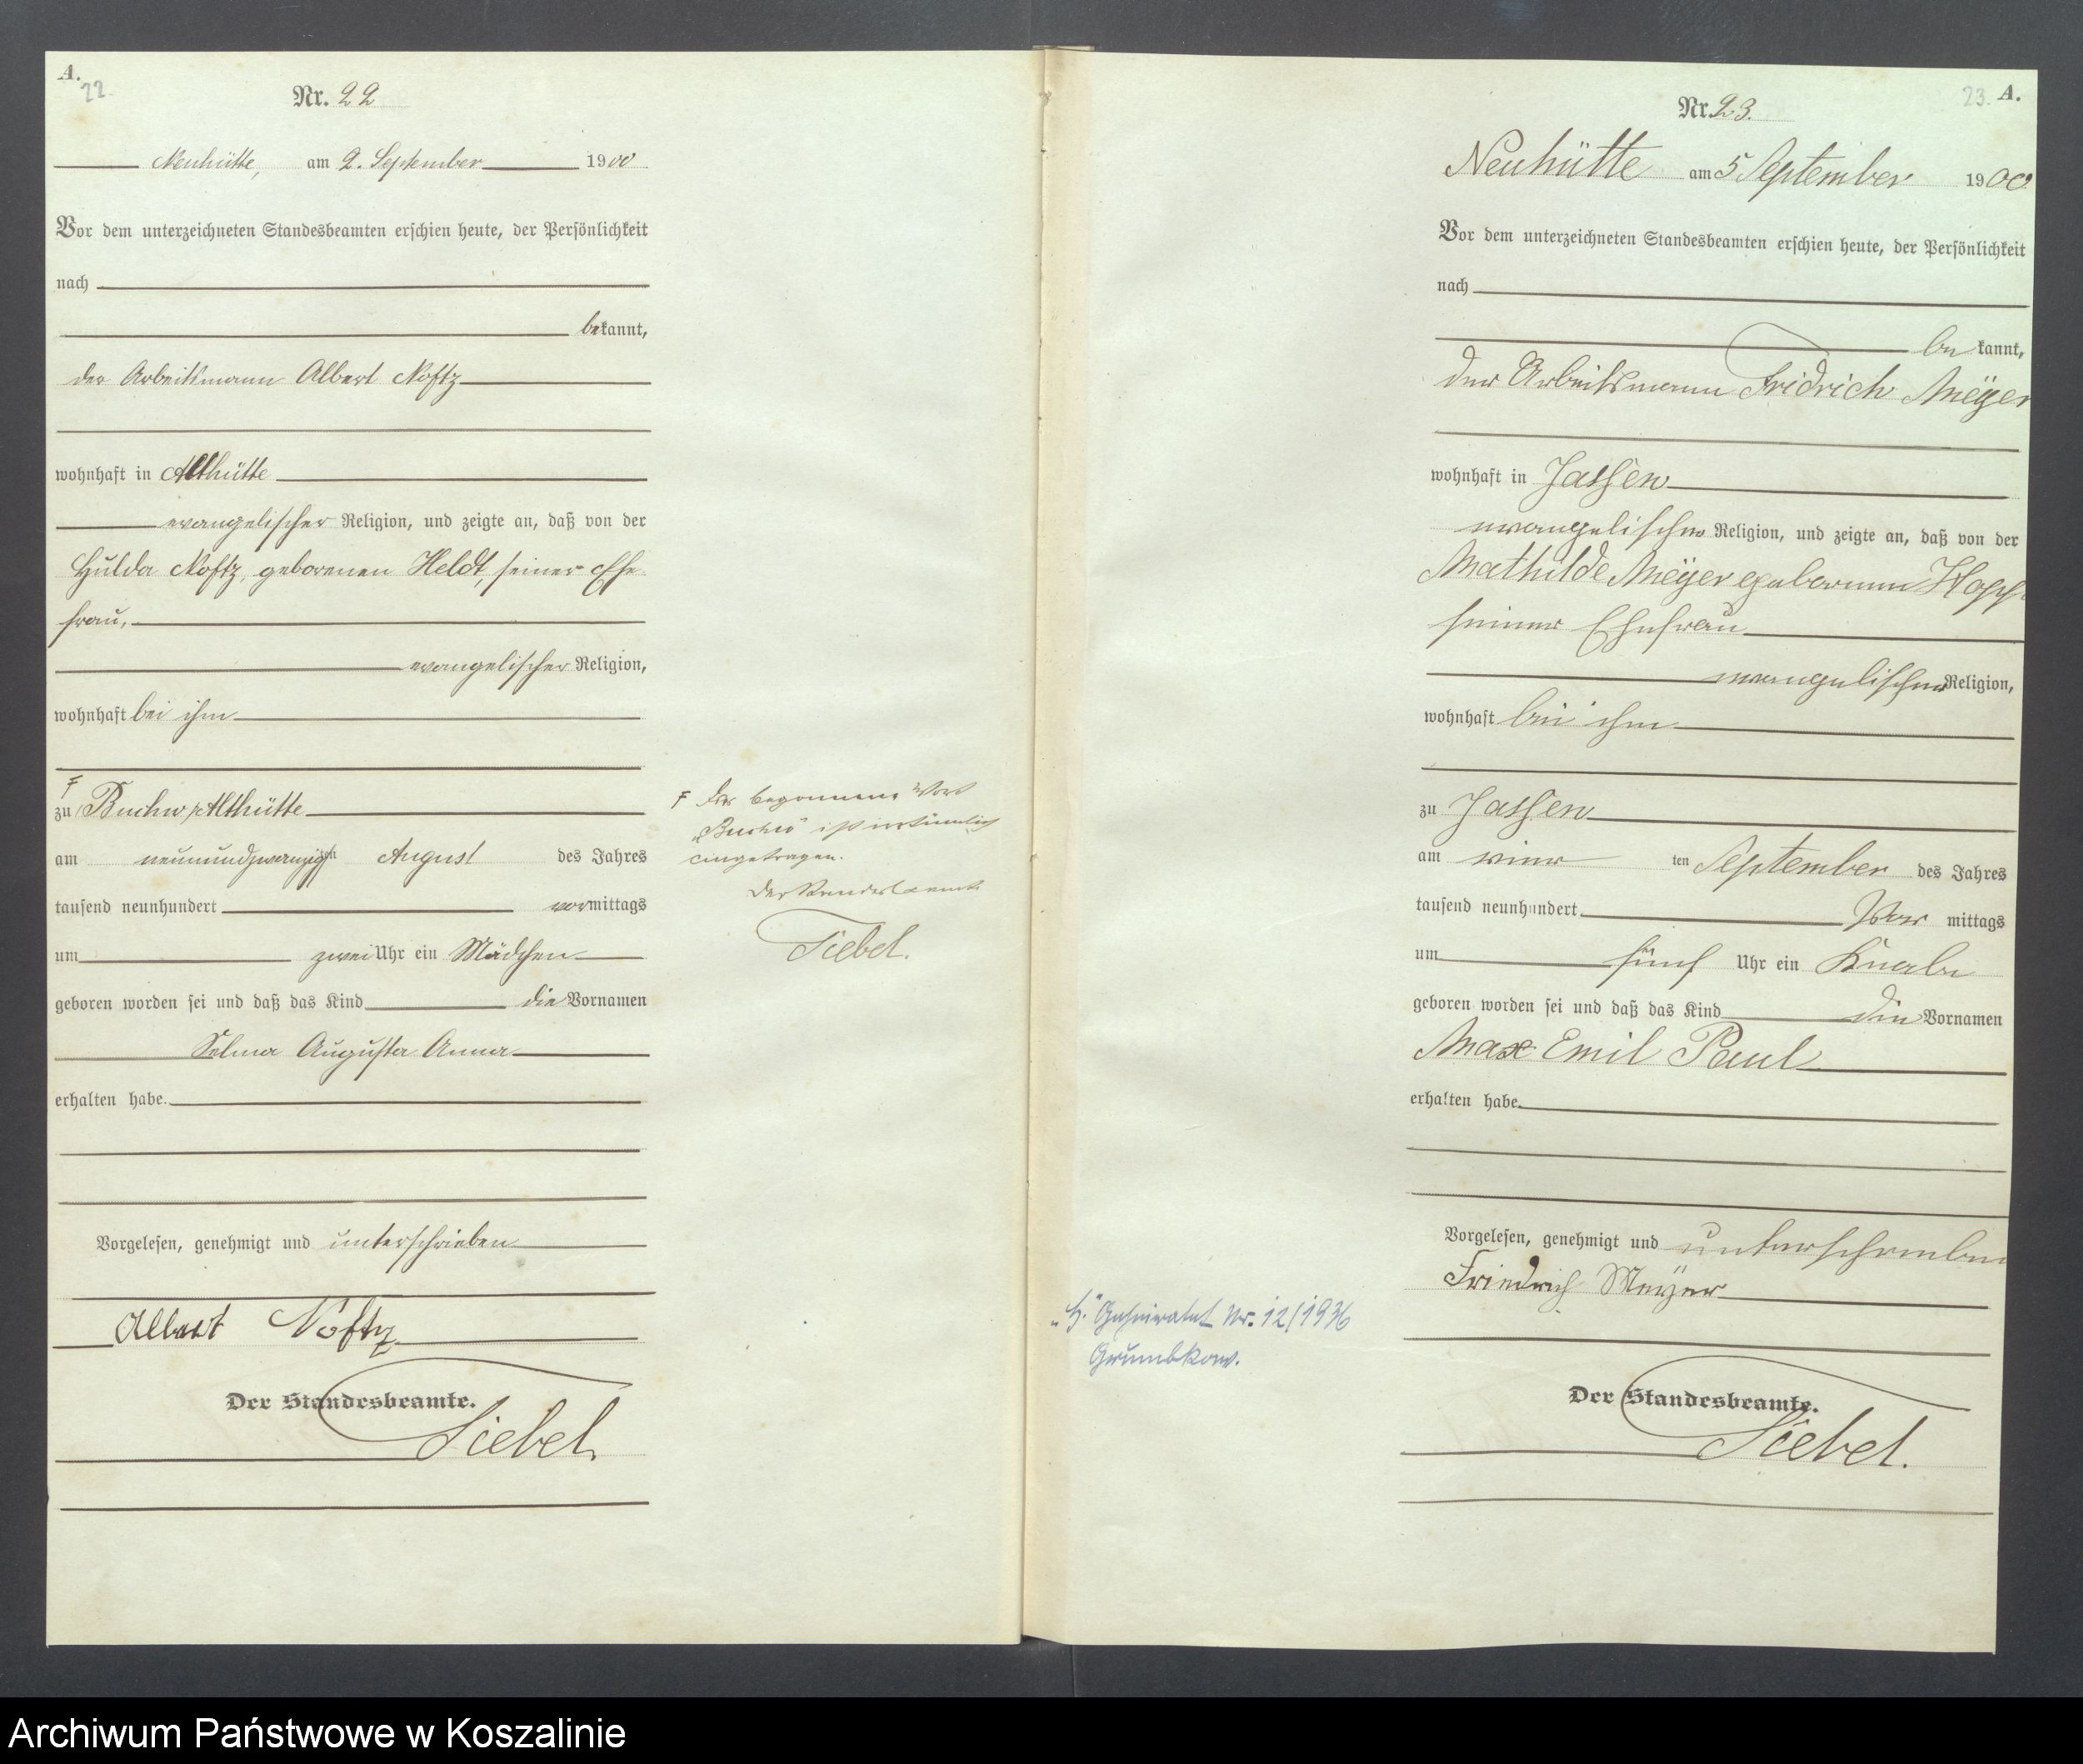 A.
22.
Nr. 22
Neuhütte, am 2. September 1900
Vor dem unterzeichneten Standesbeamten erschien heute, der Persönlichkeit
nach
bekannt,
der Arbeitsmann Albert Noftz
wohnhaft in Althütte
evangelischer Religion, und zeigte an, daß von der
Hulda Noftz, geborenen Heldt, seiner Ehe-
frau,
evangelischer Religion,
wohnhaft bei ihm
F
zu Buchw Althütte
am neunundzwanzigsten August des Jahres
tausend neunhundert vormittags
um zwei Uhr ein Mädchen
geboren worden sei und daß das Kind die Vornamen
Selma Augusta Anna
erhalten habe.
Vorgelesen, genehmigt und unterschrieben
Albert Noftz
Der Standesbeamte.
Siebel
F Das begonnene Wort
„Buchw" ist irrtümlich
eingetragen.
Der Standesbeamte
Siebel.
23. A.
Nr. 23.
Neuhütte am 5 September 1900
Vor dem unterzeichneten Standesbeamten erschien heute, der Persönlichkeit
nach
be kannt,
der Arbeitsmann Fridrich Meÿer
wohnhaft in Jassen
evangelischer Religion, und zeigte an, daß von der
Mathilde Meÿer geborenen
seiner Ehefrau
evangelischer Religion,
wohnhaft bei ihm
zu Jassen
am vier ten September des Jahres
tausend neunhundert Vor mittags
um fünf Uhr ein Knabe
geboren worden sei und daß das Kind die Vornamen
Max Emil Paul
erhalten habe.
Vorgelesen, genehmigt und unterschrieben
Friedrich Meÿer
Der Standesbeamte.
Siebel.
„H." Geheiratet Nr. 12/1936
Grumbkow.
Archiwum Państwowe w Koszalinie